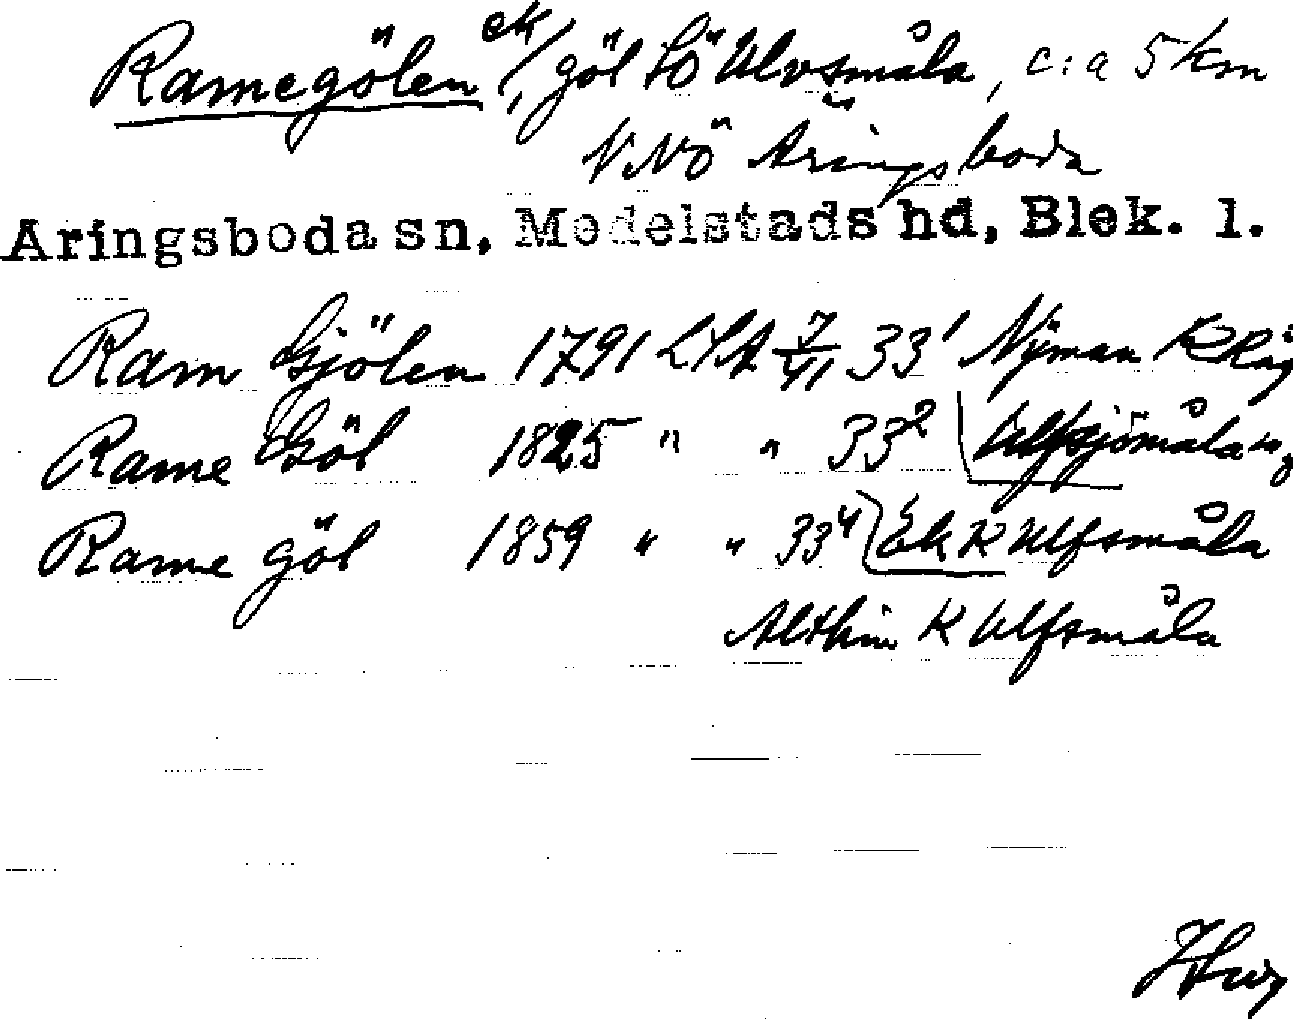 Ramegölen ek/, göl SÖ Ulvsmåla, c:a 5 km
NNÖ Äringsboda
Aringsboda sn, Medelstads hd, Blek. l.
Ram Gjölen 1791 LSA 7/41 33¹ Nyman K
Rame Göl 1825 " " 33² Ulfsjömåla
Rame göl 1859 " " 33⁴ Ek K Ulfsmåla
Althin K Ulfsmåla